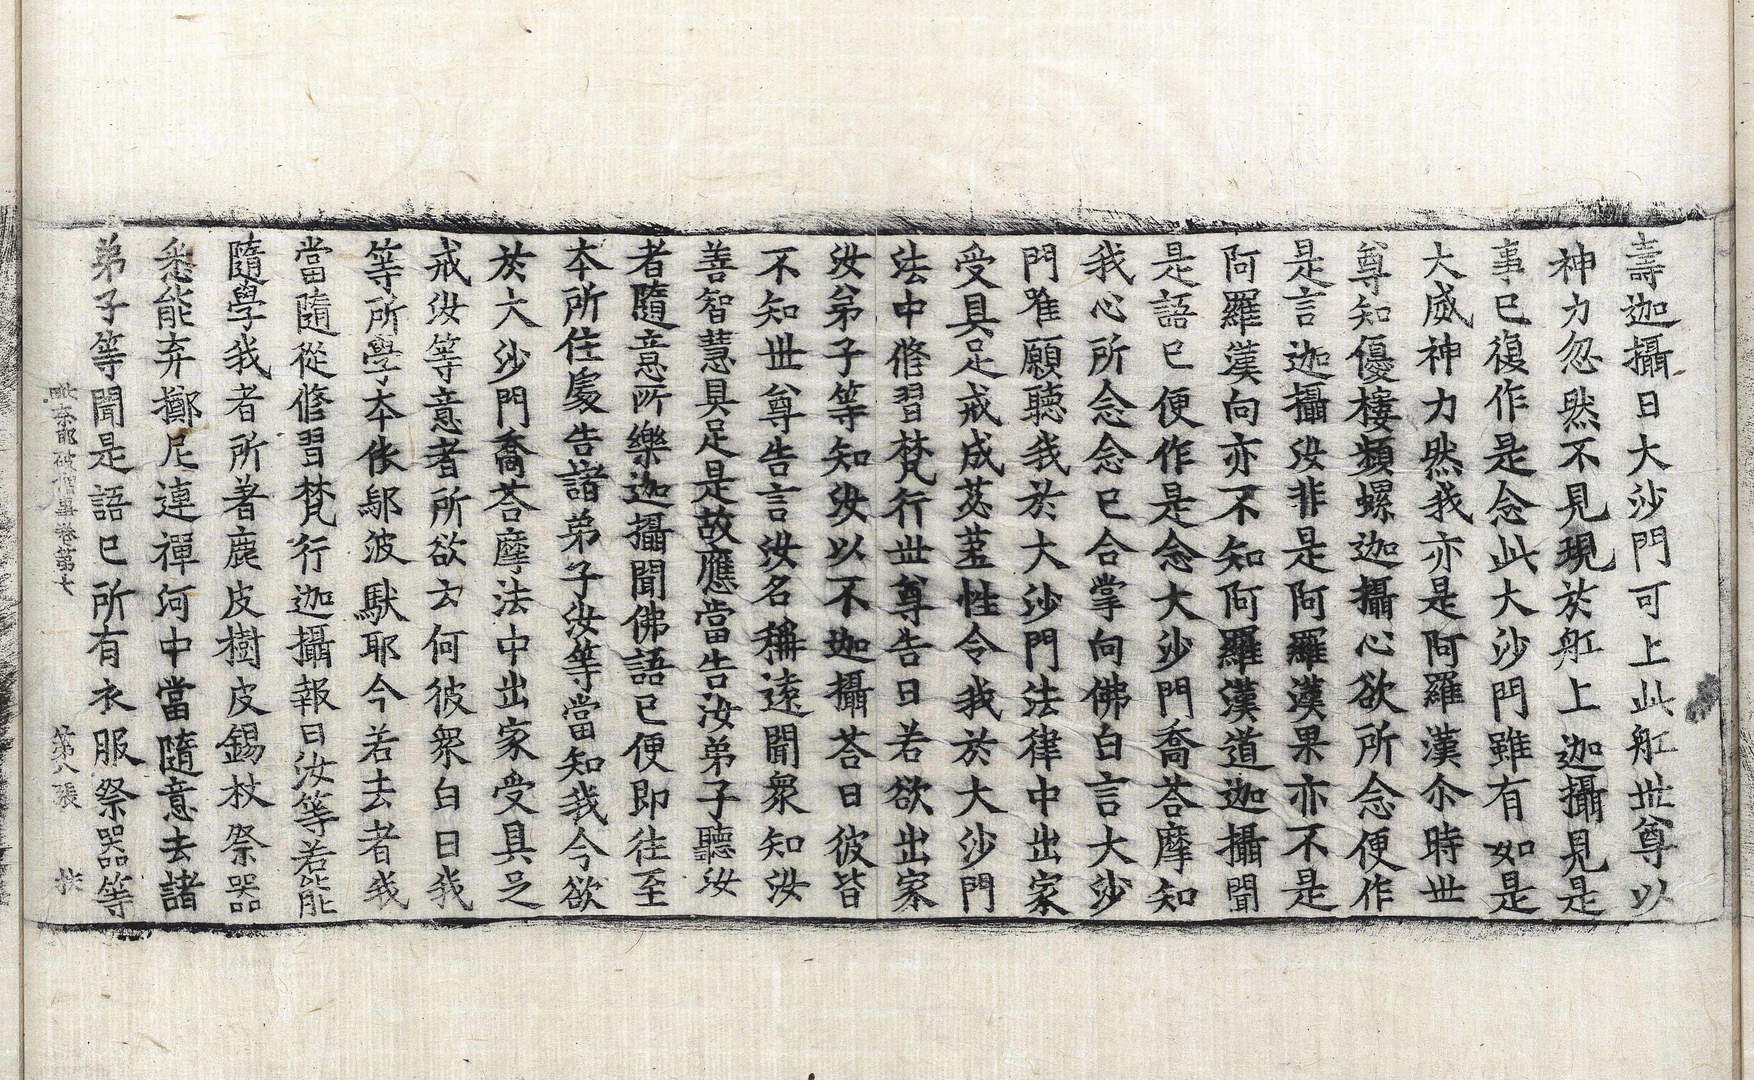 壽迦攝曰大沙門可上此舡世尊以
神力忽然不見現於舡上迦攝見是
事已復作是念此大沙門雖有如是
大威神力然我亦是阿羅漢尒時世
尊知優樓頻螺迦攝心欲所念便作
是言迦攝汝非是阿羅漢果亦不是
阿羅漢向亦不知阿羅漢道迦攝聞
是語已便作是念大沙門喬荅摩知
我心所念念已合掌向佛白言大沙
門唯願聽我於大沙門法律中出家
受具足戒成苾蒭性令我於大沙門
法中修習梵行世尊告曰若欲出家
汝弟子等知汝以不迦攝荅曰彼皆
不知世尊告言汝名稱遠聞衆知汝
善智慧具足是故應當告汝弟子聽汝
者隨意所樂迦攝聞佛語已便即往至
本所住處告諸弟子汝等當知我今欲
於大沙門喬荅摩法中出家受具足
戒汝等意者所欲云何彼衆白曰我
等所學本依鄔波馱耶今若去者我
當隨從修習梵行迦攝報曰汝等若能
隨學我者所著鹿皮樹皮錫杖祭器
悉能弃擲尼連禪河中當隨意去諸
弟子等聞是語已所有衣服祭器等
毗奈耶破僧事卷第七 第八張